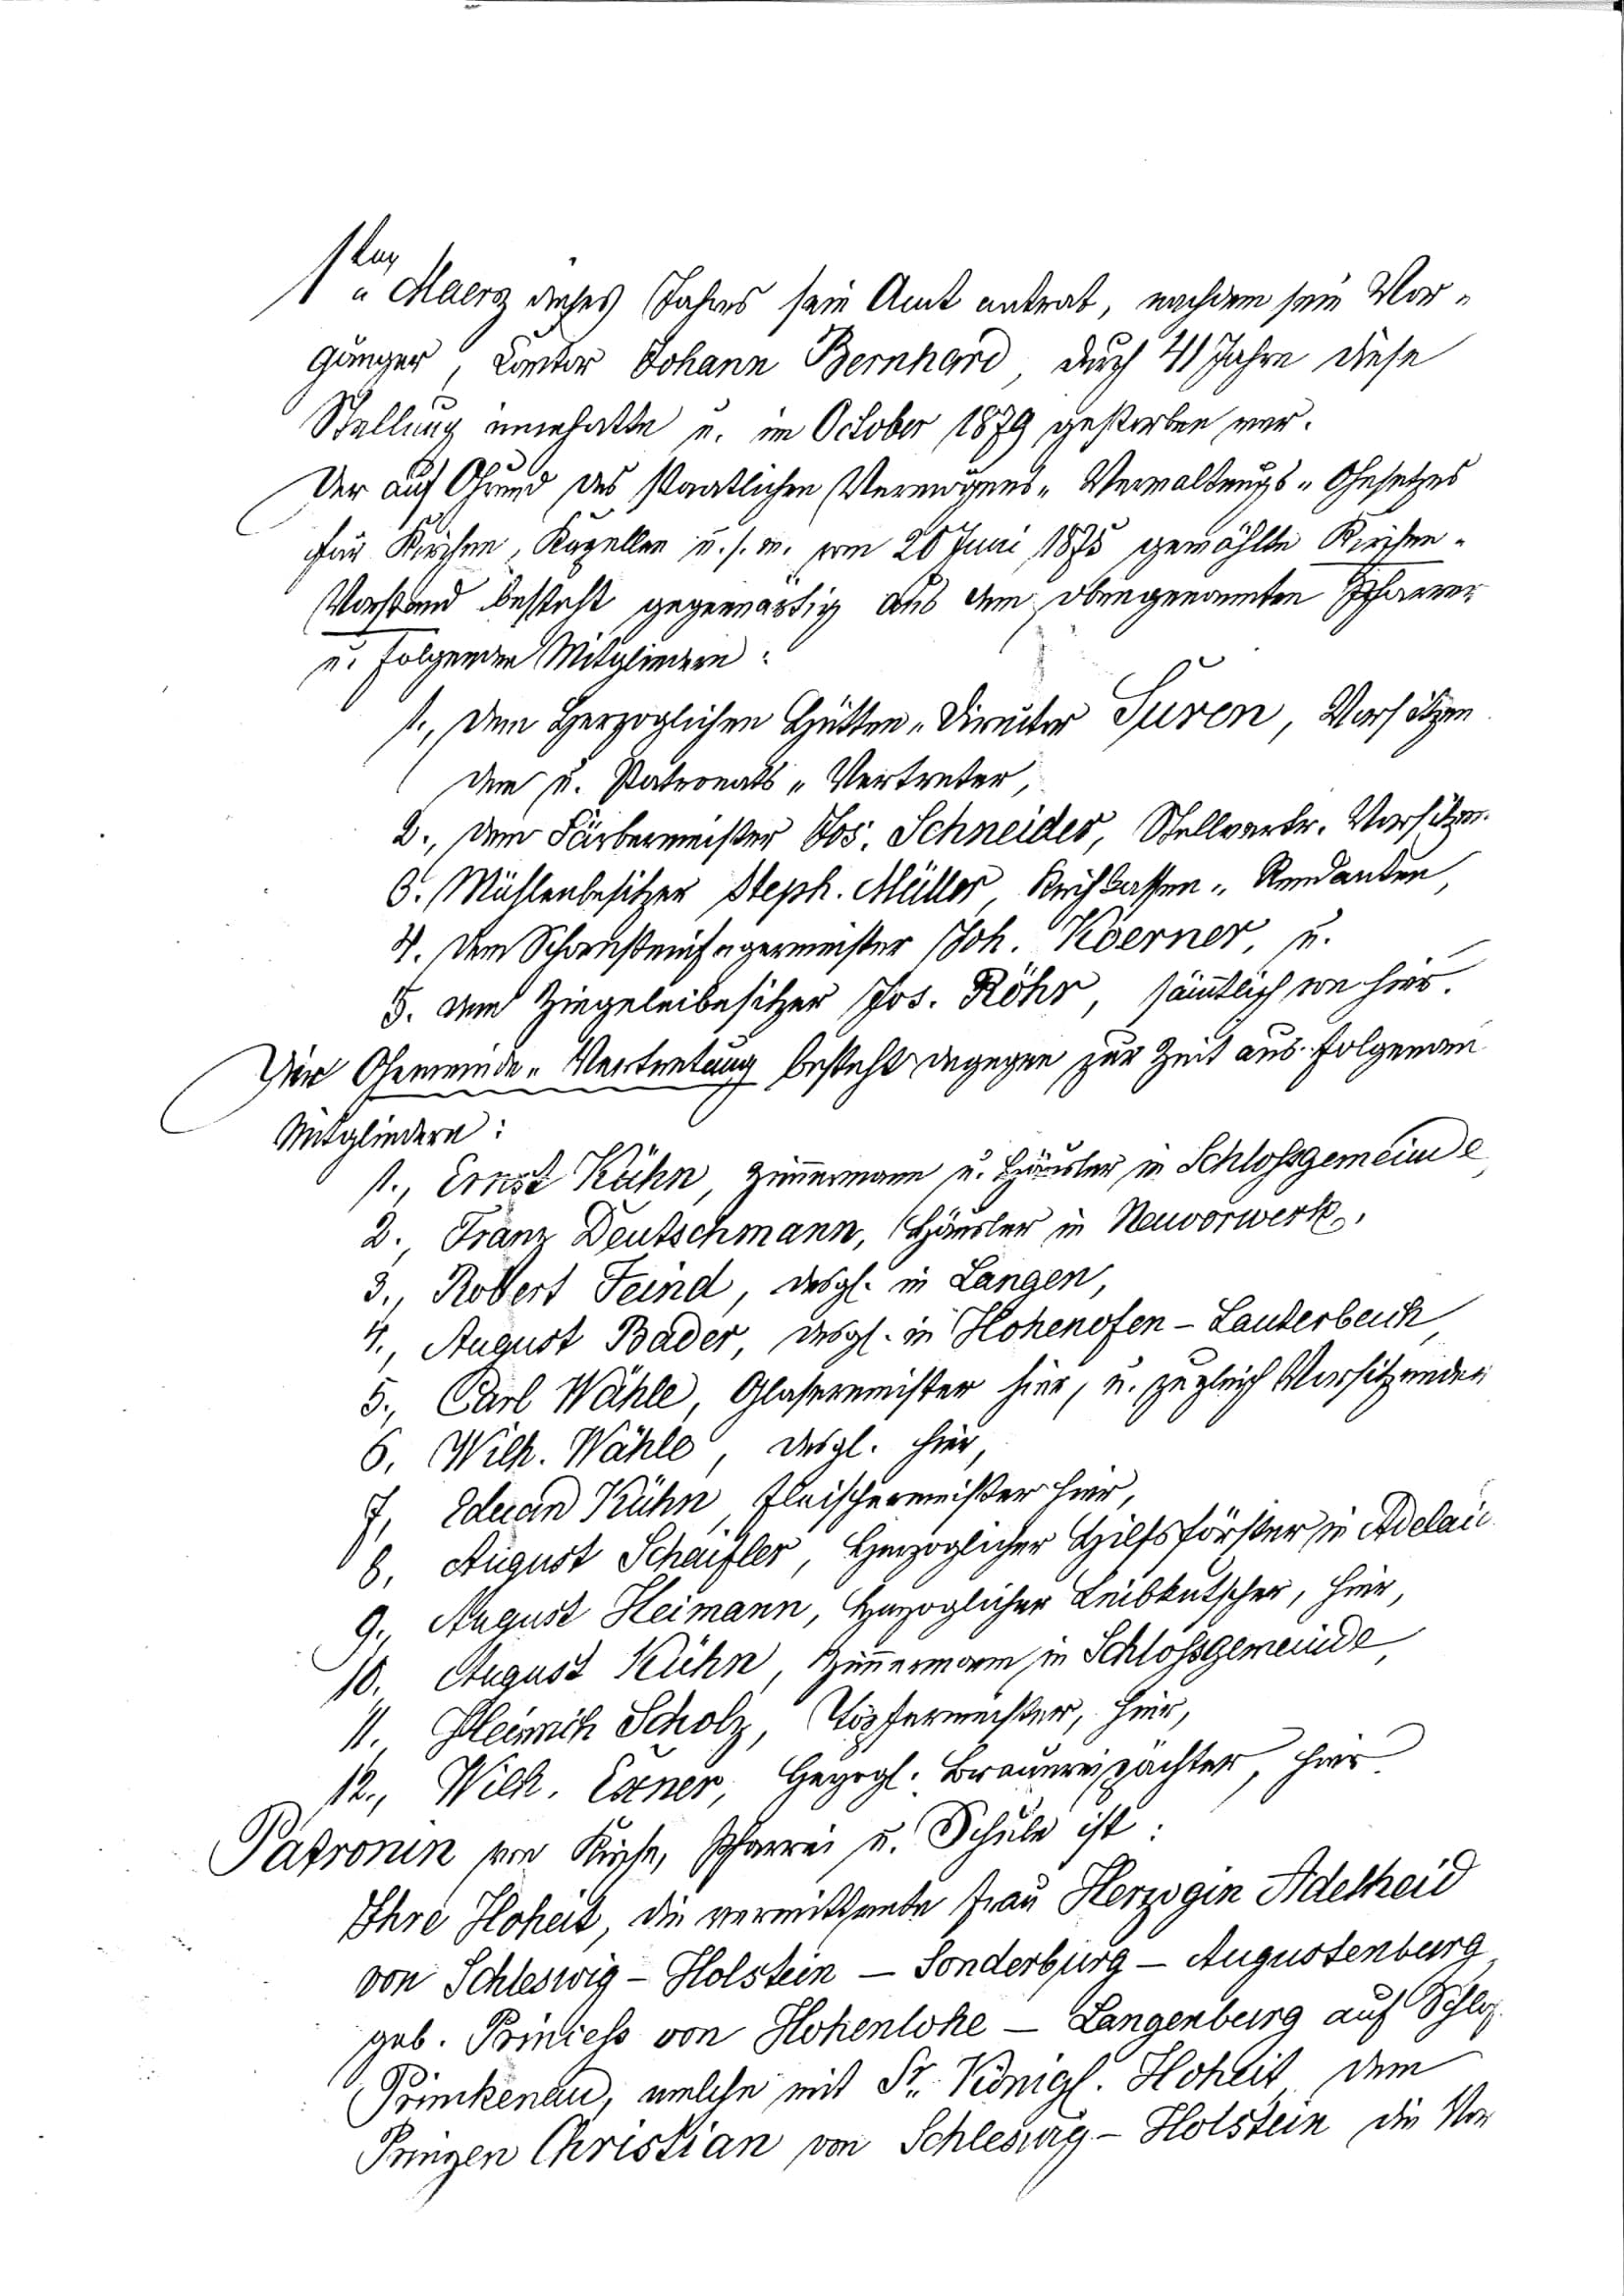 1ten Maerz dieses Jahres sein Amt antrat, nachdem sein Vor-
gänger, Cantor Johann Bernhard, durch 41 Jahre diese
Stellung innehatte u. im October 1879 gestorben war.
Der auf Grund des staatlichen Vermögens-Verwaltungs-Gesetzes
für Kirchen, Kapellen u.s.w. vom 20 Juni 1875 gewählte Kirchen-
Vorstand besteht gegenwärtig aus dem obengenannten Pfarrer
u. folgenden Mitgliedern:
1., dem Herzoglichen Hütten-Director Suren, Vorsitzen
den u. Patronats-Vertreter,
2., dem Färbermeister Jos. Schneider, Stellvertr. Vorsitzen.
3. Mühlenbesitzer Steph. Müller, Kirchkassen-Rendanten,
4. dem Schornsteinfegermeister Joh. Koerner, u.
5. dem Ziegeleibesitzer Jos. Röhr, sämtlich von hier.
Die Gemeinde-Vertretung besteht dagegen zur Zeit aus folgenden
Mitgliedern:
1., Ernst Kühn, Zimmermann u. Häusler in Schlossgemeinde,
2., Franz Deutschmann, Häusler in Neuvorwerk,
3., Robert Feind, desgl. in Langen,
4., August Bader, desgl. in Hohenofen-Lauterbach,
5., Carl Wähle, Glasermeister hier, u. zugleich Vorsitzender
6, Wilh. Wähle, desgl. hier,
7, Eduard Kühn, Fleischermeister hier,
8, August Schaifler, Herzoglicher Hilfsförster in Adelai
9., August Heimann, Herzoglicher Leibkutscher, hier,
10, August Kühn, Zimmermann in Schlossgemeinde,
11., Heinrich Scholz, Töpfermeister, hier,
12., Wilh. Exner, Herzogl. Brauereipächter, hier.
Patronin von Kirche, Pfarrei u. Schule ist:
Ihre Hoheit, die verwittwete Frau Herzogin Adelheid
von Schleswig-Holstein-Sonderburg-Augustenburg,
geb. Princess von Hohenlohe-Langenburg auf Schloß
Primkenau, welche mit Sr. Königl. Hoheit dem
Prinzen Christian von Schleswig-Holstein die Vor